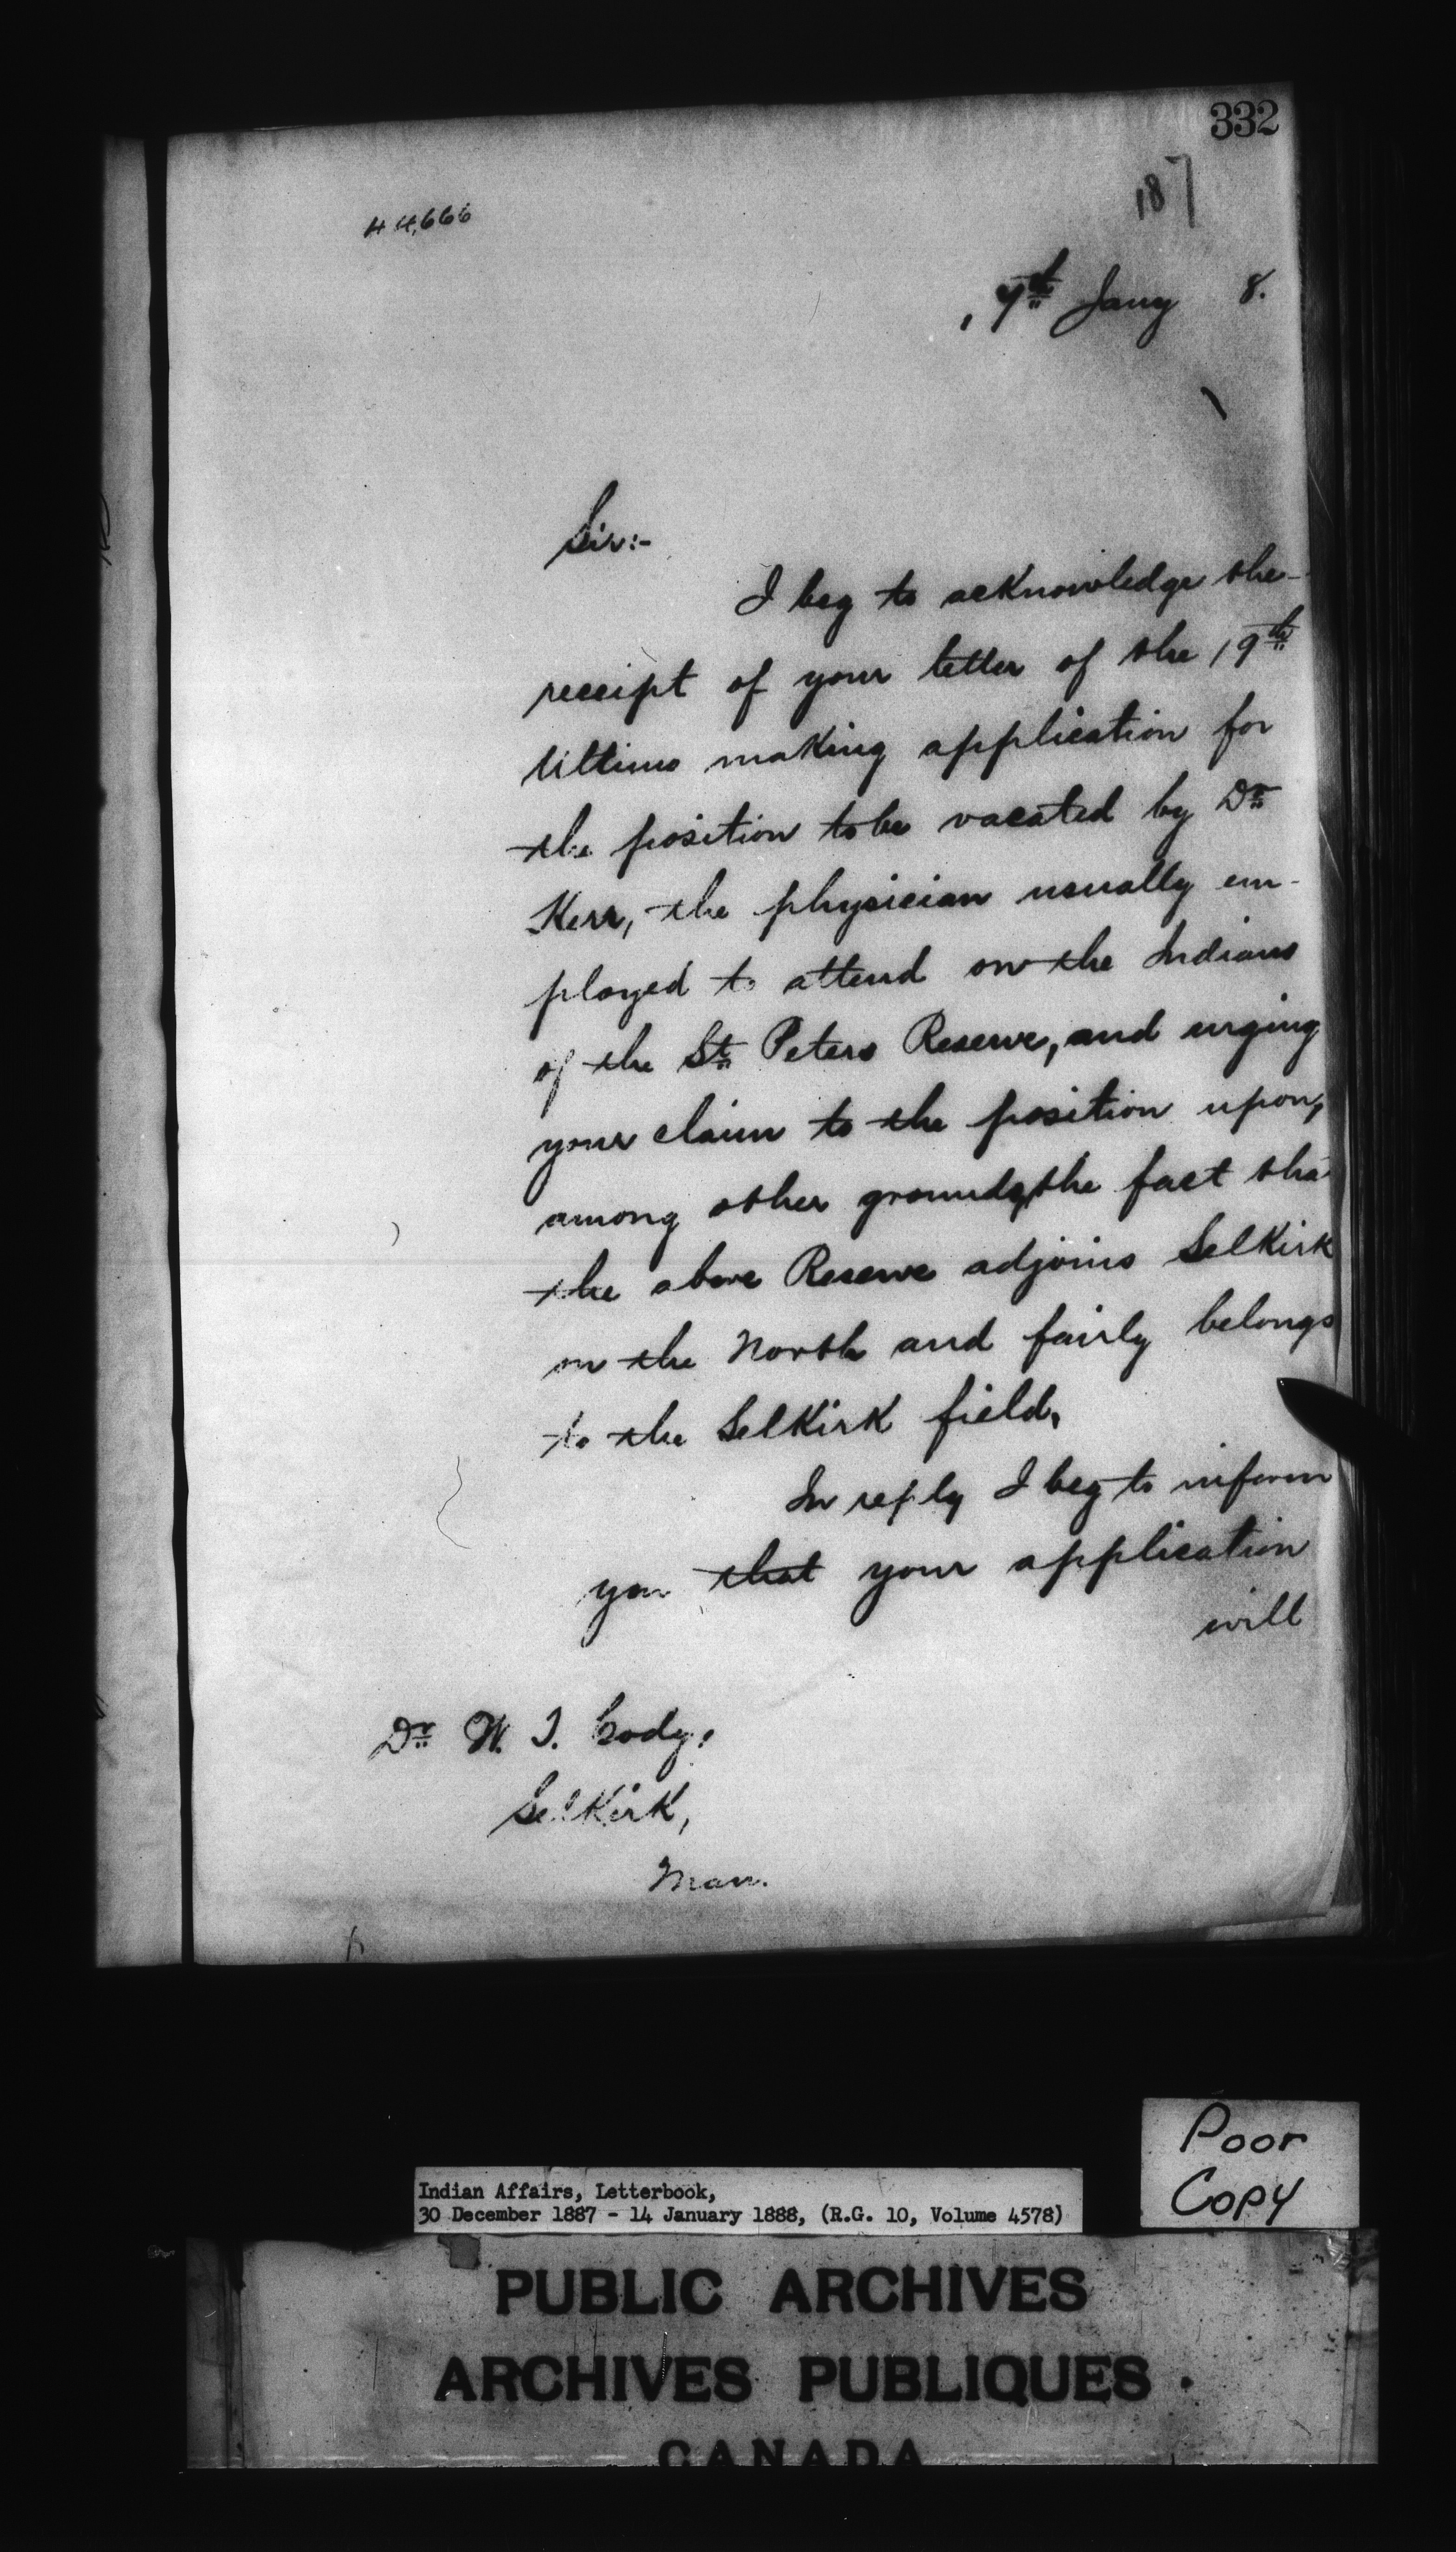 332
187
44,666
7th Jany 8.
Sir:-
I beg to acknowledge the
receipt of your letter of the 19th
Ultimo making application for
the position to be vacated by Dr
Kerr, the physician usually em-
ployed to attend on the Indians
of the St. Peters Reserve, and urging
your claim to the position upon,
among other grounds, the fact tha
the above Reserve adjoins Selkirk
on the North and fairly belongs
to the Selkirk field.
In reply I beg to inform
you that your application
will
Dr W. J. Cody,
Selkirk,
Man.
Poor
Copy
Indian Affairs, Letterbook,
30 December 1887 - 14 January 1888, (R.G. 10, Volume 4578)
PUBLIC ARCHIVES
ARCHIVES PUBLIQUES
CANADA